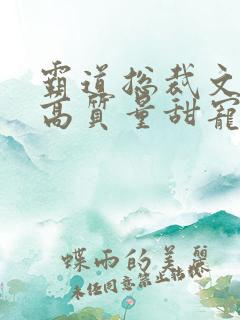 霸道总裁文
高质量甜宠
蝶雨的美丽
未经同意禁止转载